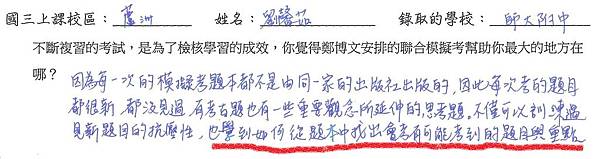 國三上課校區：蘆洲　姓名：劉馨茹　錄取的學校：師大附中
不斷複習的考試，是為了檢核學習的成效，你覺得鄭博文安排的聯合模擬考幫助你最大的地方在
哪？因為每一次的模擬考題本都不是由同一家的出版社出版的，因此每次考的題目
都很新，都沒見過，有考古題也有一些重要觀念所延伸的思考題。不僅可以訓練遇
見新題目的抗壓性，也學到如何從題本中找出會考有可能考到的題目與重點